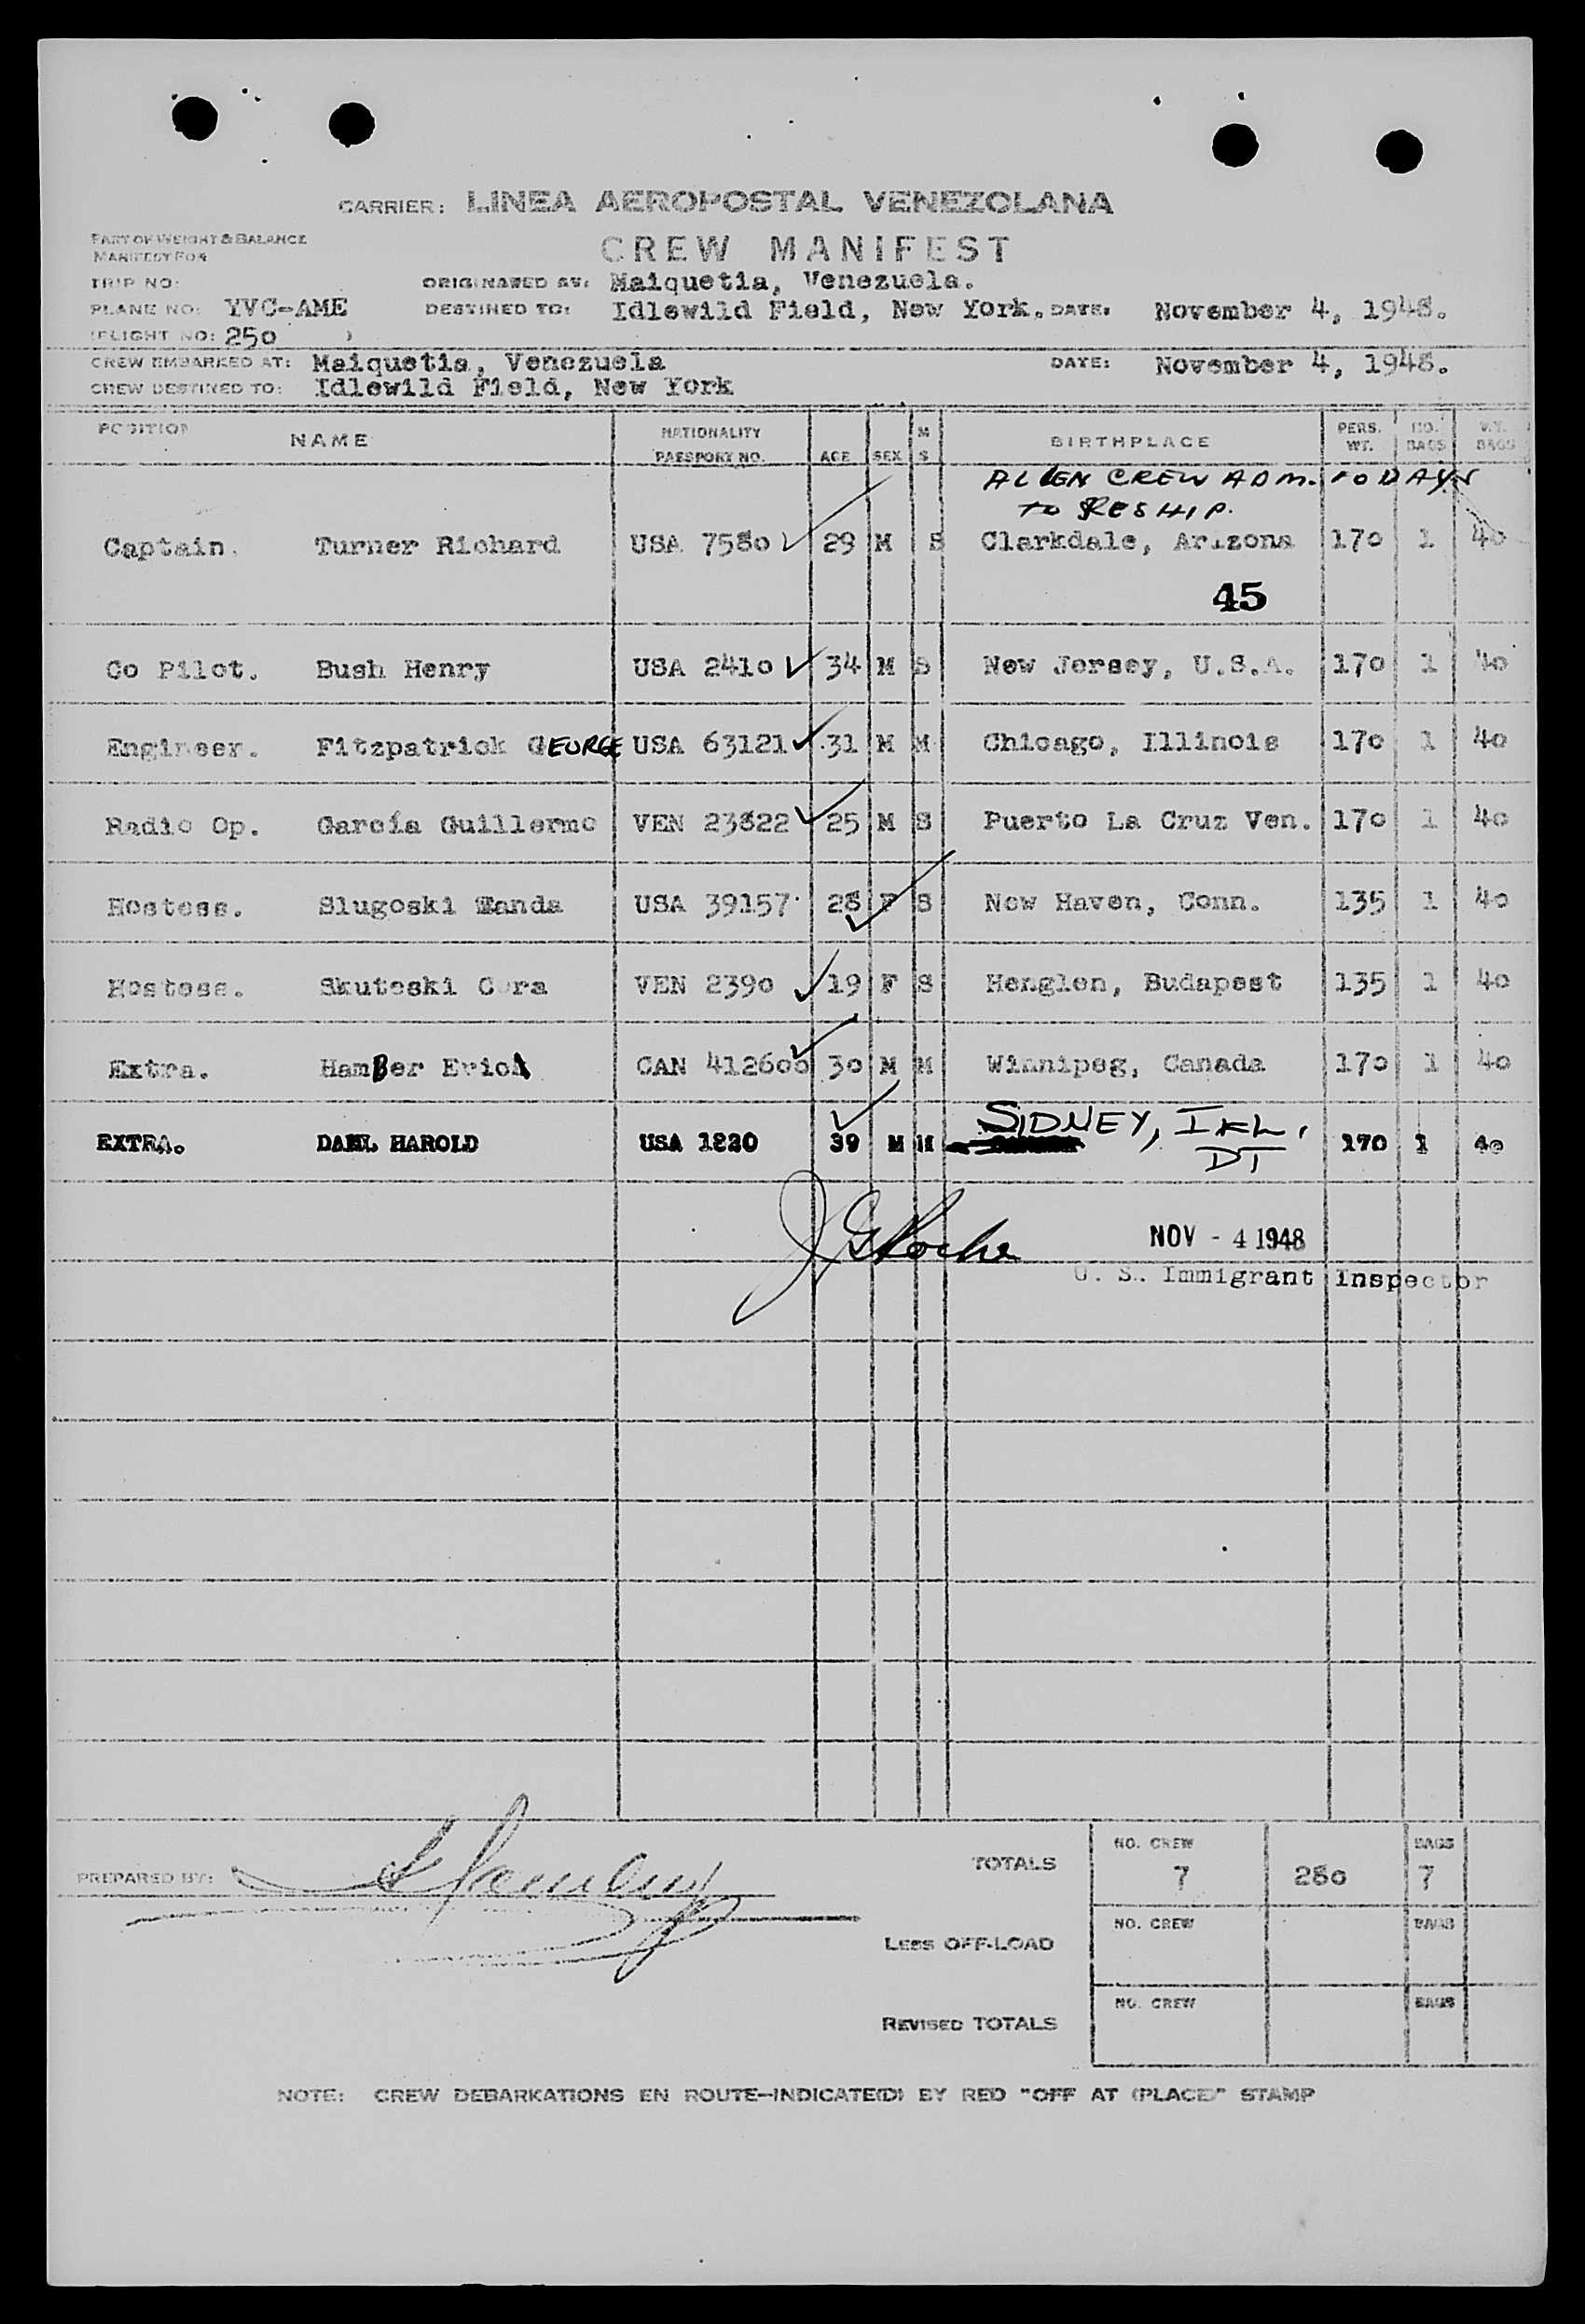 CARRIER: LINEA AEROPOSTAL VENEZOLANA
PART OF WEIGHT & BALANCE
MANIFEST FOR
CREW MANIFEST
TRIP NO: ORIGINATED AT: Maiquetia, Venezuela.
PLANE NO: YVC-AME DESTINED TO: Idlewild Field, New York. DATE: November 4, 1948.
(FLIGHT NO: 250 )
CREW EMBARKED AT: Maiquetia, Venezuela DATE: November 4, 1948.
CREW DESTINED TO: Idlewild Field, New York
POSITION NAME NATIONALITY PASSPORT NO. AGE SEX M S BIRTHPLACE PERS. WT. NO. BAGS WT. BAGS
ALIEN CREW ADM. DAYS
to RESHIP.
Captain. Turner Richard USA 7580 29 M S Clarkdale, Arizona 170 1 40
45
Co Pilot. Bush Henry USA 2410 34 M S New Jersey, U.S.A. 170 1 40
Engineer. Fitzpatrick GEORGE USA 63121 31 M M Chicago, Illinois 170 1 40
Radio Op. García Guillermo VEN 23822 25 M S Puerto La Cruz Ven. 170 1 40
Hostess. Slugoski Wanda USA 39157 28 F S New Haven, Conn. 135 1 40
Hostess. Skuteski Cora VEN 2390 19 F S Henglen, Budapest 135 1 40
Extra. HamBer Eric CAN 412600 30 M M Winnipeg, Canada 170 1 40
EXTRA. DAHL HAROLD USA 1220 39 M M SIDNEY, ILL. 170 1 40
DT
NOV - 4 1948
U. S. Immigrant Inspector
PREPARED BY: TOTALS NO. CREW 7 280 BAGS 7
LESS OFF-LOAD NO. CREW BAGS
REVISED TOTALS NO. CREW BAGS
NOTE: CREW DEBARKATIONS EN ROUTE—INDICATE(D) BY RED "OFF AT (PLACE)" STAMP